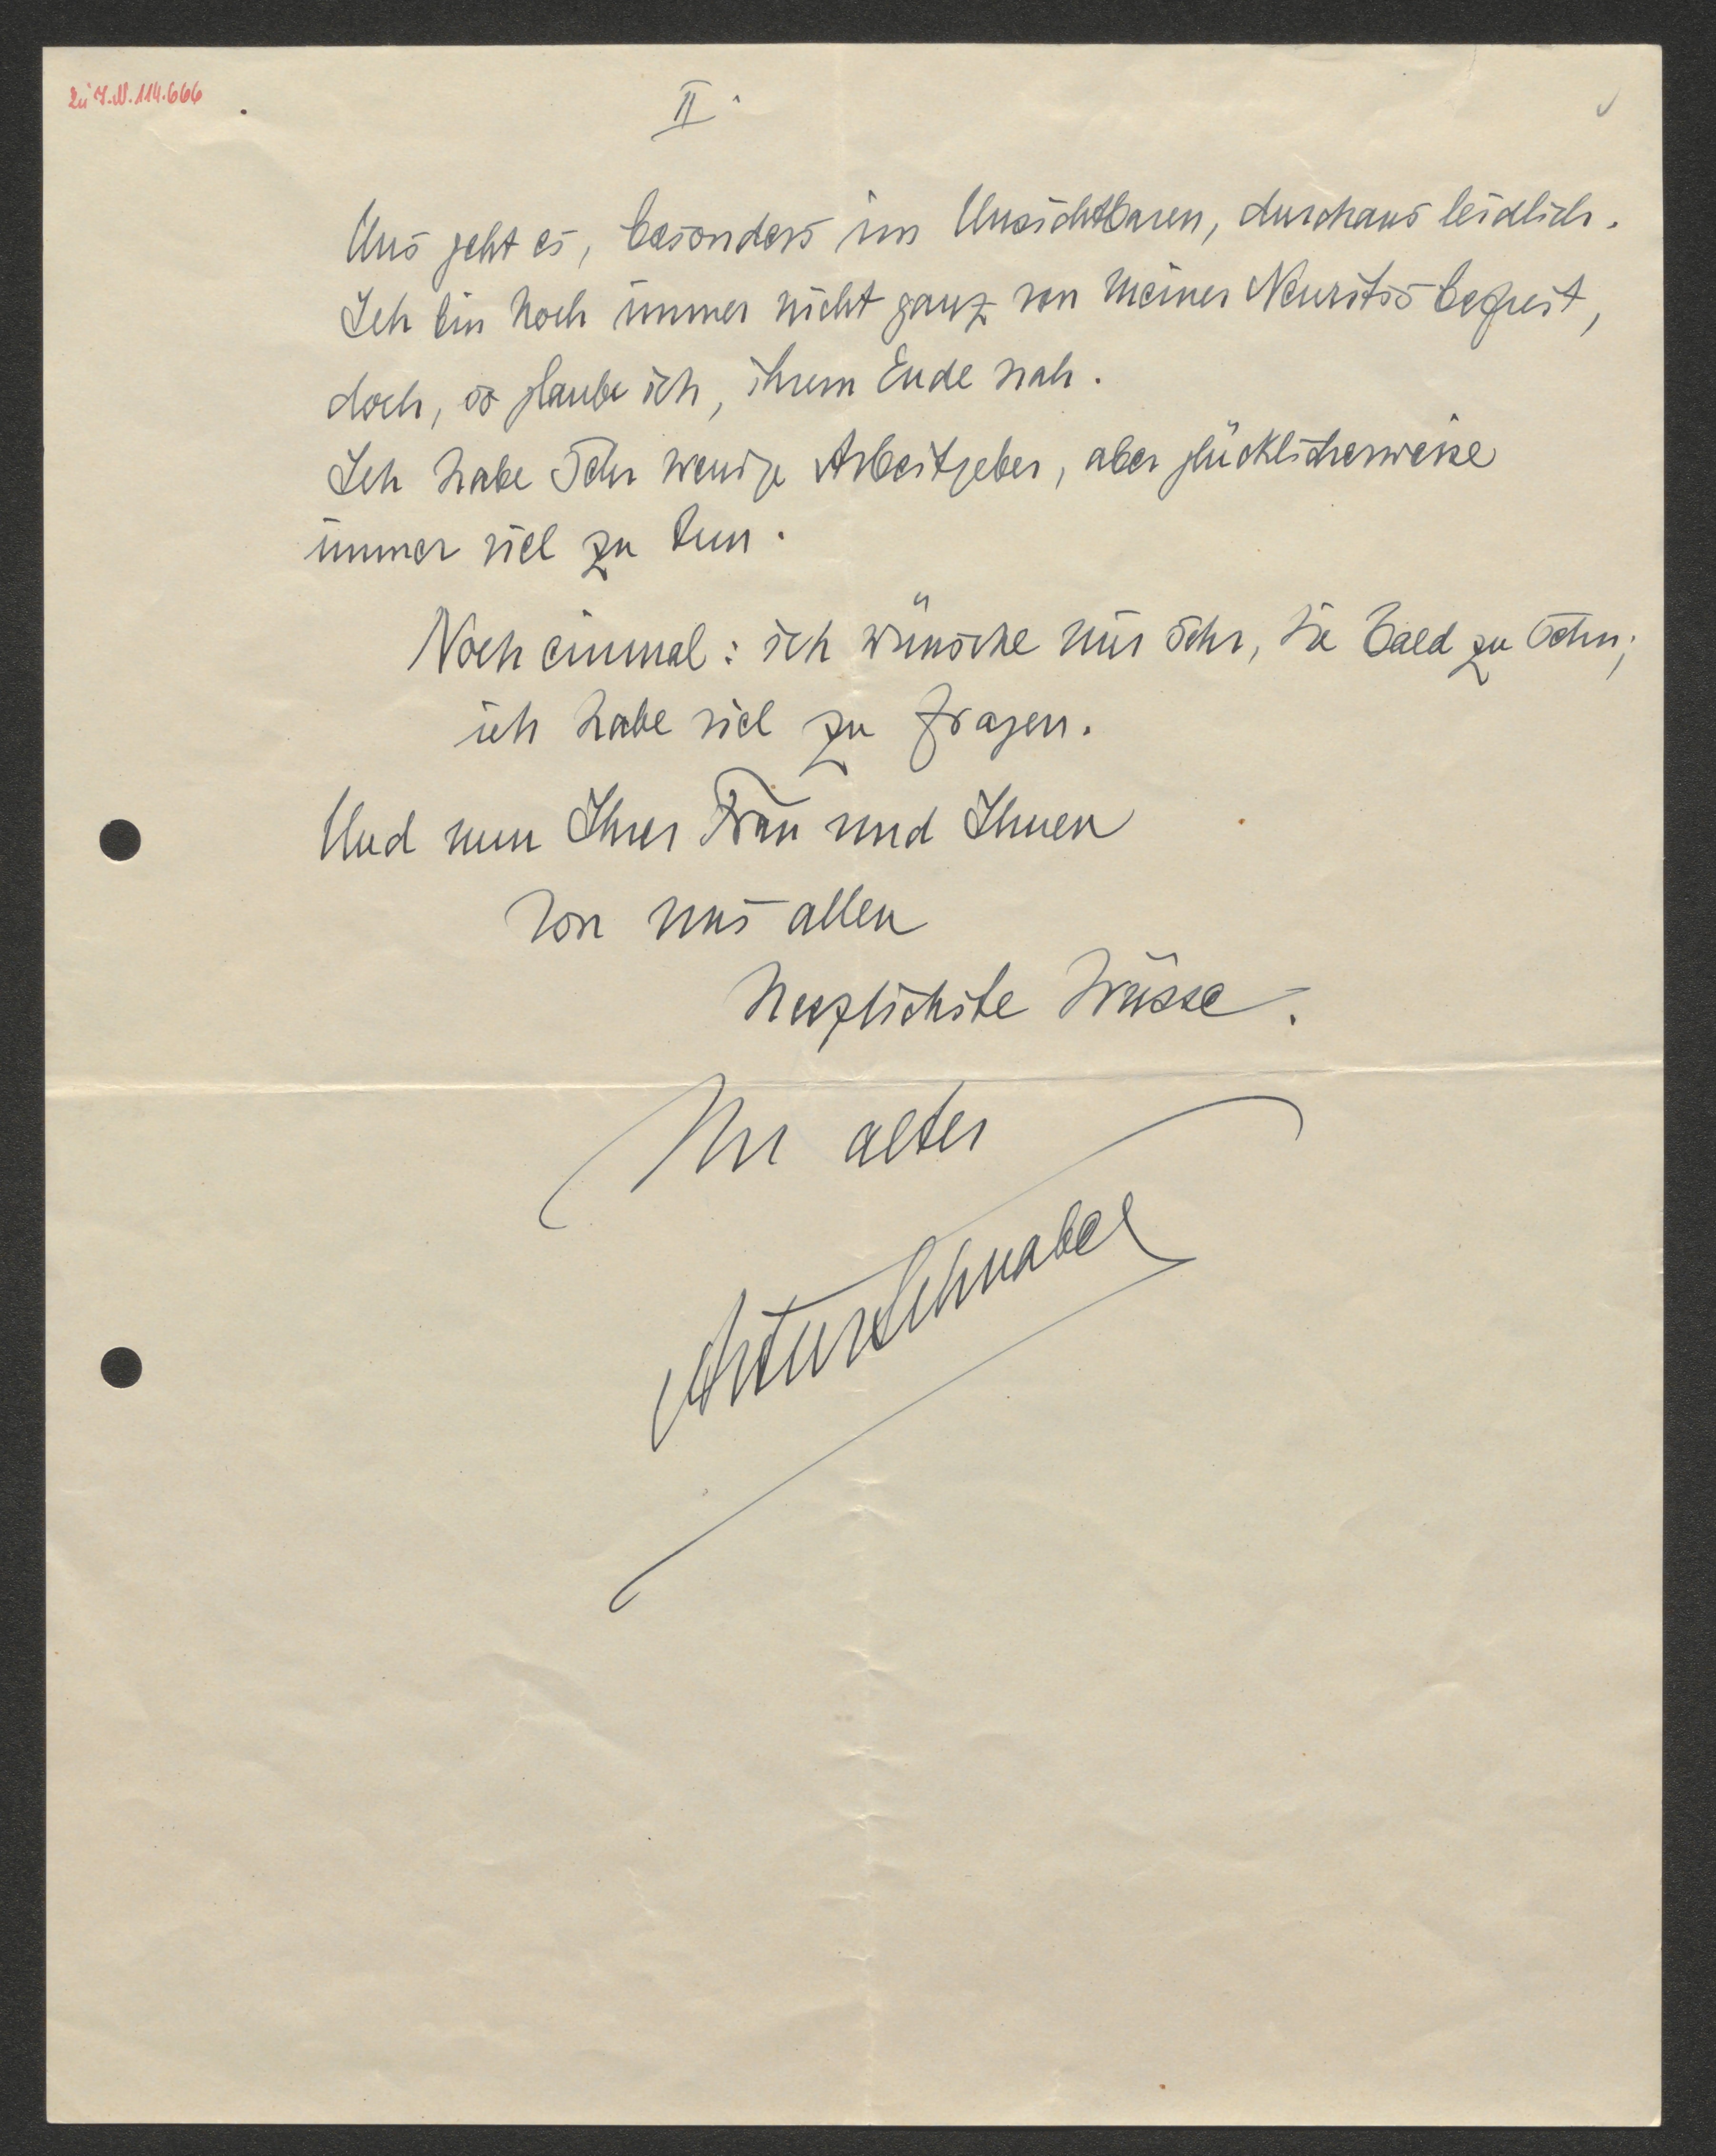 Zu I.N. 114.666
II
Uns geht es, besonders im Unsichtbaren, durchaus leidlich.
Ich bin noch immer nicht ganz von meiner Neuritis befreit,
doch, so glaube ich, ihrem Ende nah.
Ich habe sehr wenige Arbeitgeber, aber glücklicherweise
immer viel zu tun.
Noch einmal: ich wünsche mir sehr, Sie bald zu sehn;
ich habe viel zu fragen.
Und nun Ihrer Frau und Ihnen
von uns allen
herzlichste Grüsse.
Ihr alter
Artur Schnabel